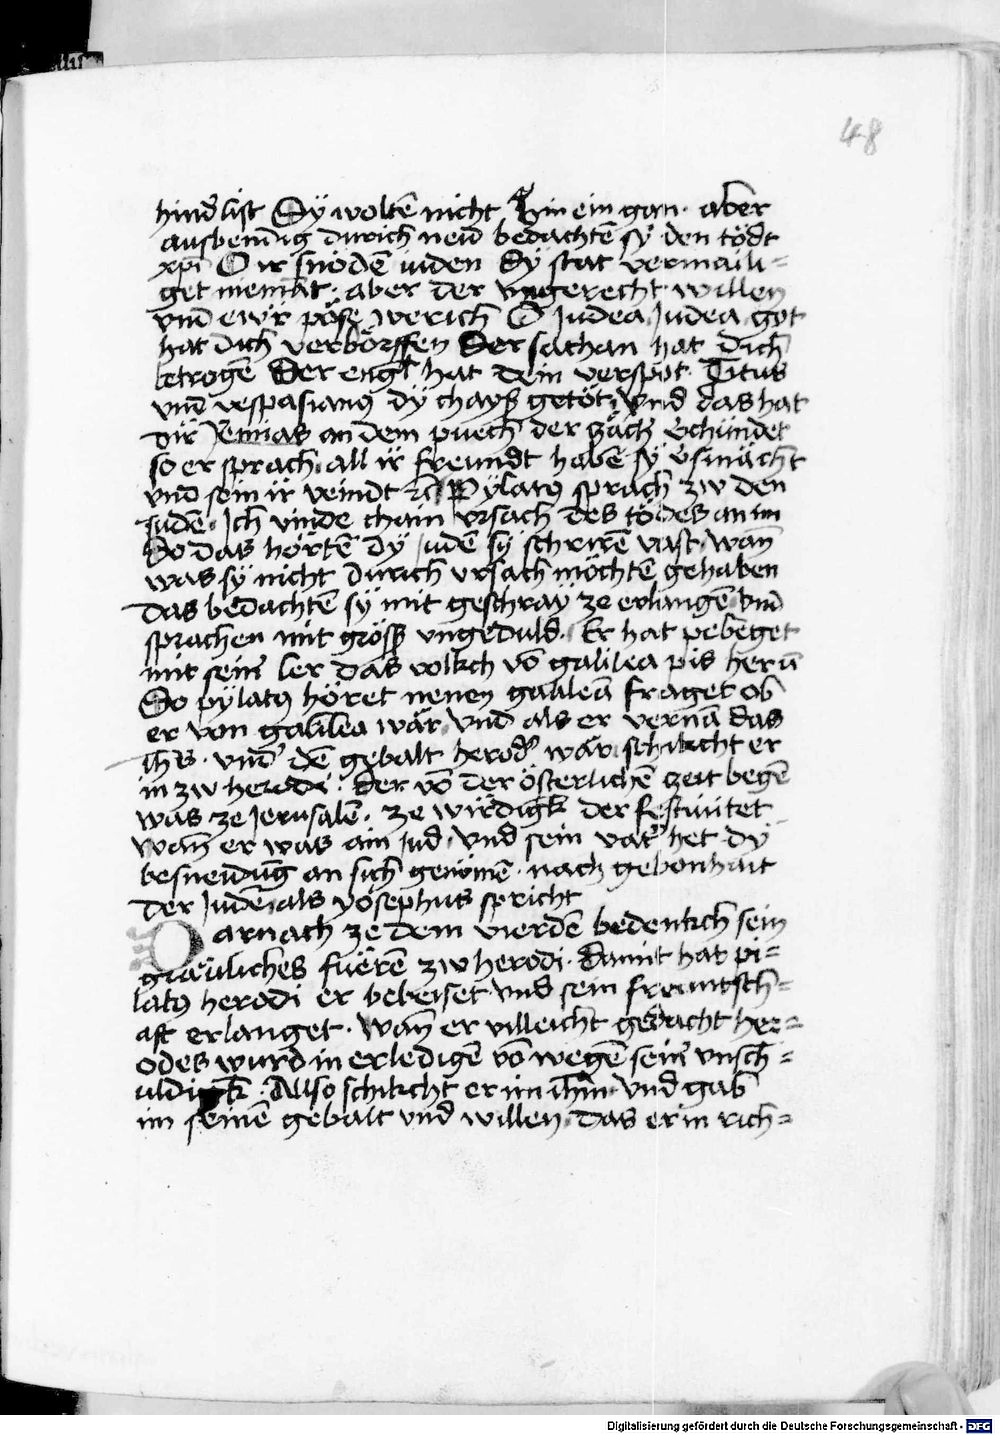 48
hind̕list Sÿ woltē nicht hin ein gan · aber
ausbendig durich neid bedachtē sÿ den tödt
xpi O ir snödē iuden dÿ stat vermaili=
get niema͠t · aber der vngerecht willen
vnd ewr̈ pöse werich O Judea Judea got
hat dich verborffen Der sathan hat dich
betrogē Der engl hat dein verspöt · Titus
vnd vespasianꝰ dÿ chaysꝰ getöt · vnd das hat
dir̈ Jemias an dem puech der zäch̕ v̕chündet
so er sprach · all ir̈ freundt habē sÿ v̕smächt
vnd sein ir̈ veindt zc̄ Pÿlatꝰ sprach zw den
Judē · Ich vinde chain vrsach des tödes an im
Do das hörtē dÿ Judē sÿ schrirē vast · wan̄
was sÿ nicht durich vrsach möchtē gehaben
das bedachtē sÿ mit geschraÿ ze erlangē · vnd
sprachen mit grösß vngeduld · Er hat pebeget
mit sein̕ ler das volkch vō galilea pis herū
Do pÿlatꝰ höret nenen galileā fraget ob
er von galilea wär · vnd als er vernā das
ihs · vnd̕ dē gebalt herodꝰ wär · schikcht er
in zw herodi · der vō der österlichē zeit begē
was ze Jerusalē · ze wirdigk̄ der festiuitet
wan̄ er was ain Jud · vnd sein vat̕ het dÿ
besneidūg an sich genömē · nach gebonhait
der Judē als yosephus spricht
Darnach ze dem vierdē bedenkch sein
gräuliches fuerē zw herodi · damit hat pi=
latꝰ herodi er bebeiset vnd sein freuntsch=
aft erlanget · wan̄ er villeicht gedacht her=
odes wurd in erledigē vō wegē sein̕ vnsch=
uldigk̄ · Allso schikcht er im ihm̄ · vnd gab
im seinē gebalt vnd willen · das er in rich=
Digitalisierung gefördert durch die Deutsche Forschungsgemeinschaft - DFG